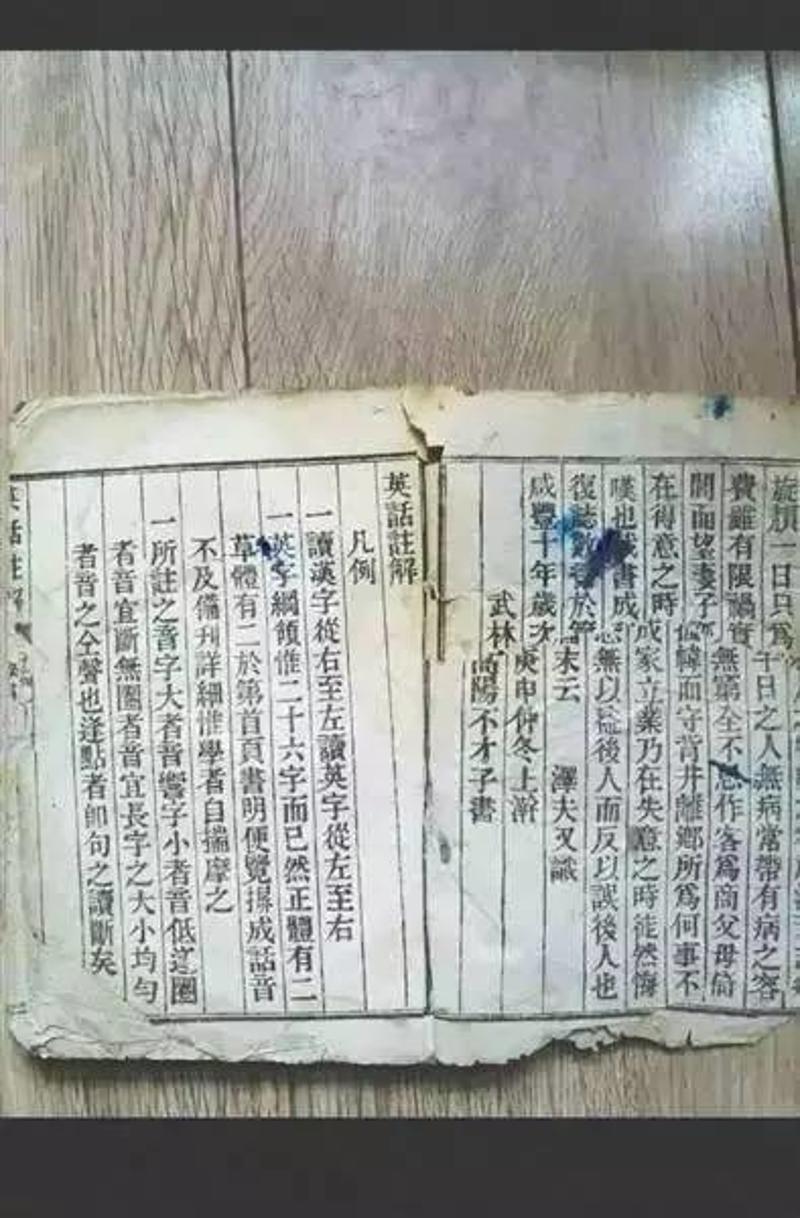 旋頹一日只為千日之人無病常帶有病之容
費雖有限禍實無窮全不思作客為商父母倚
閭面望妻子幃而守背井離鄉所為何事不
在得意之時成家立業乃在失意之時徒然悔
嘆也書成無以益後人而反以誤後人也
復誌數於末云 澤夫又識
咸豐十年歲次庚申仲冬上澣
武林高陽不才子書
英話註解
凡例
一讀漢字從右至左讀英字從左至右
一英字綱領惟二十六字而已然正體有二
草體有二於第首頁書明便覽揖成話音
不及備刊詳細惟學者自揣摩之
一所註之音字大者音響字小者音低逆圈
者音宜斷無圈者音宜長字之大小均勻
者音之仝聲也逢點者即句之讀斷矣
英話註解